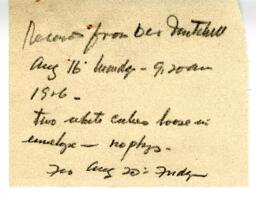 Received from Dev Mitchell
Aug 16 Monday - 9:20 am
1926 -
Two white cubes loose in
envelope -
Aug 20 = Friday